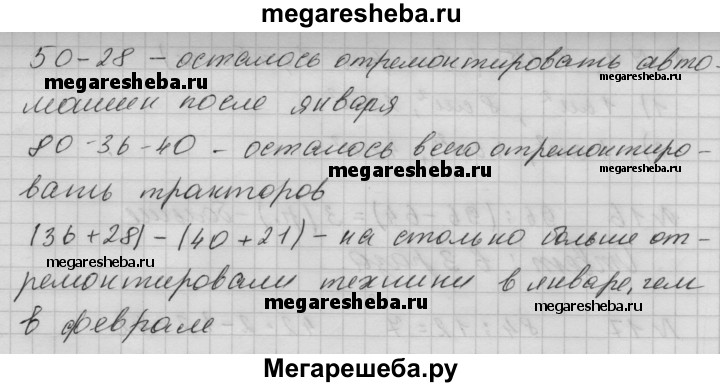 megaresheba.ru
50-28 - осталось отремонтировать авто-
megaresheba.ru
megaresheba.ru
машин после января
80-36-40 - осталось всего отремонтиро-
megaresheba.ru
вать тракторов
(36+28)-(40+21) - на столько больше от-
megaresheba.ru
ремонтировали техники в январе, чем
megaresheba.ru
megaresheba.ru
в феврале
Мегарешеба.ру